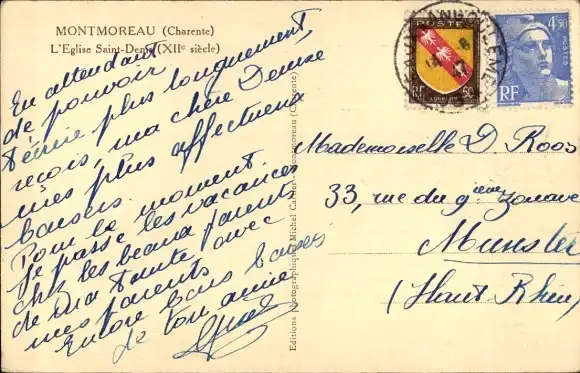 MONTMOREAU (Charente)
L'Eglise Saint-Denis (XIIe siècle)
En attendant
de pouvoir
t'écrire plus longuement,
reçois, ma chère Denise
mes plus affectueux
baisers.
Pour le moment
je passe les vacances
chez les beaux parents
de ma tante avec
mes parents
Encore bons baisers
de ton amie
POSTE
RF
50c
4f50
POSTES
RF
ANGOULEME
Editions photographiques Michel
Montmoreau (Charente)
Mademoiselle D. Roos
33, rue du 9ième Zouave
Munster
(Haut Rhin)